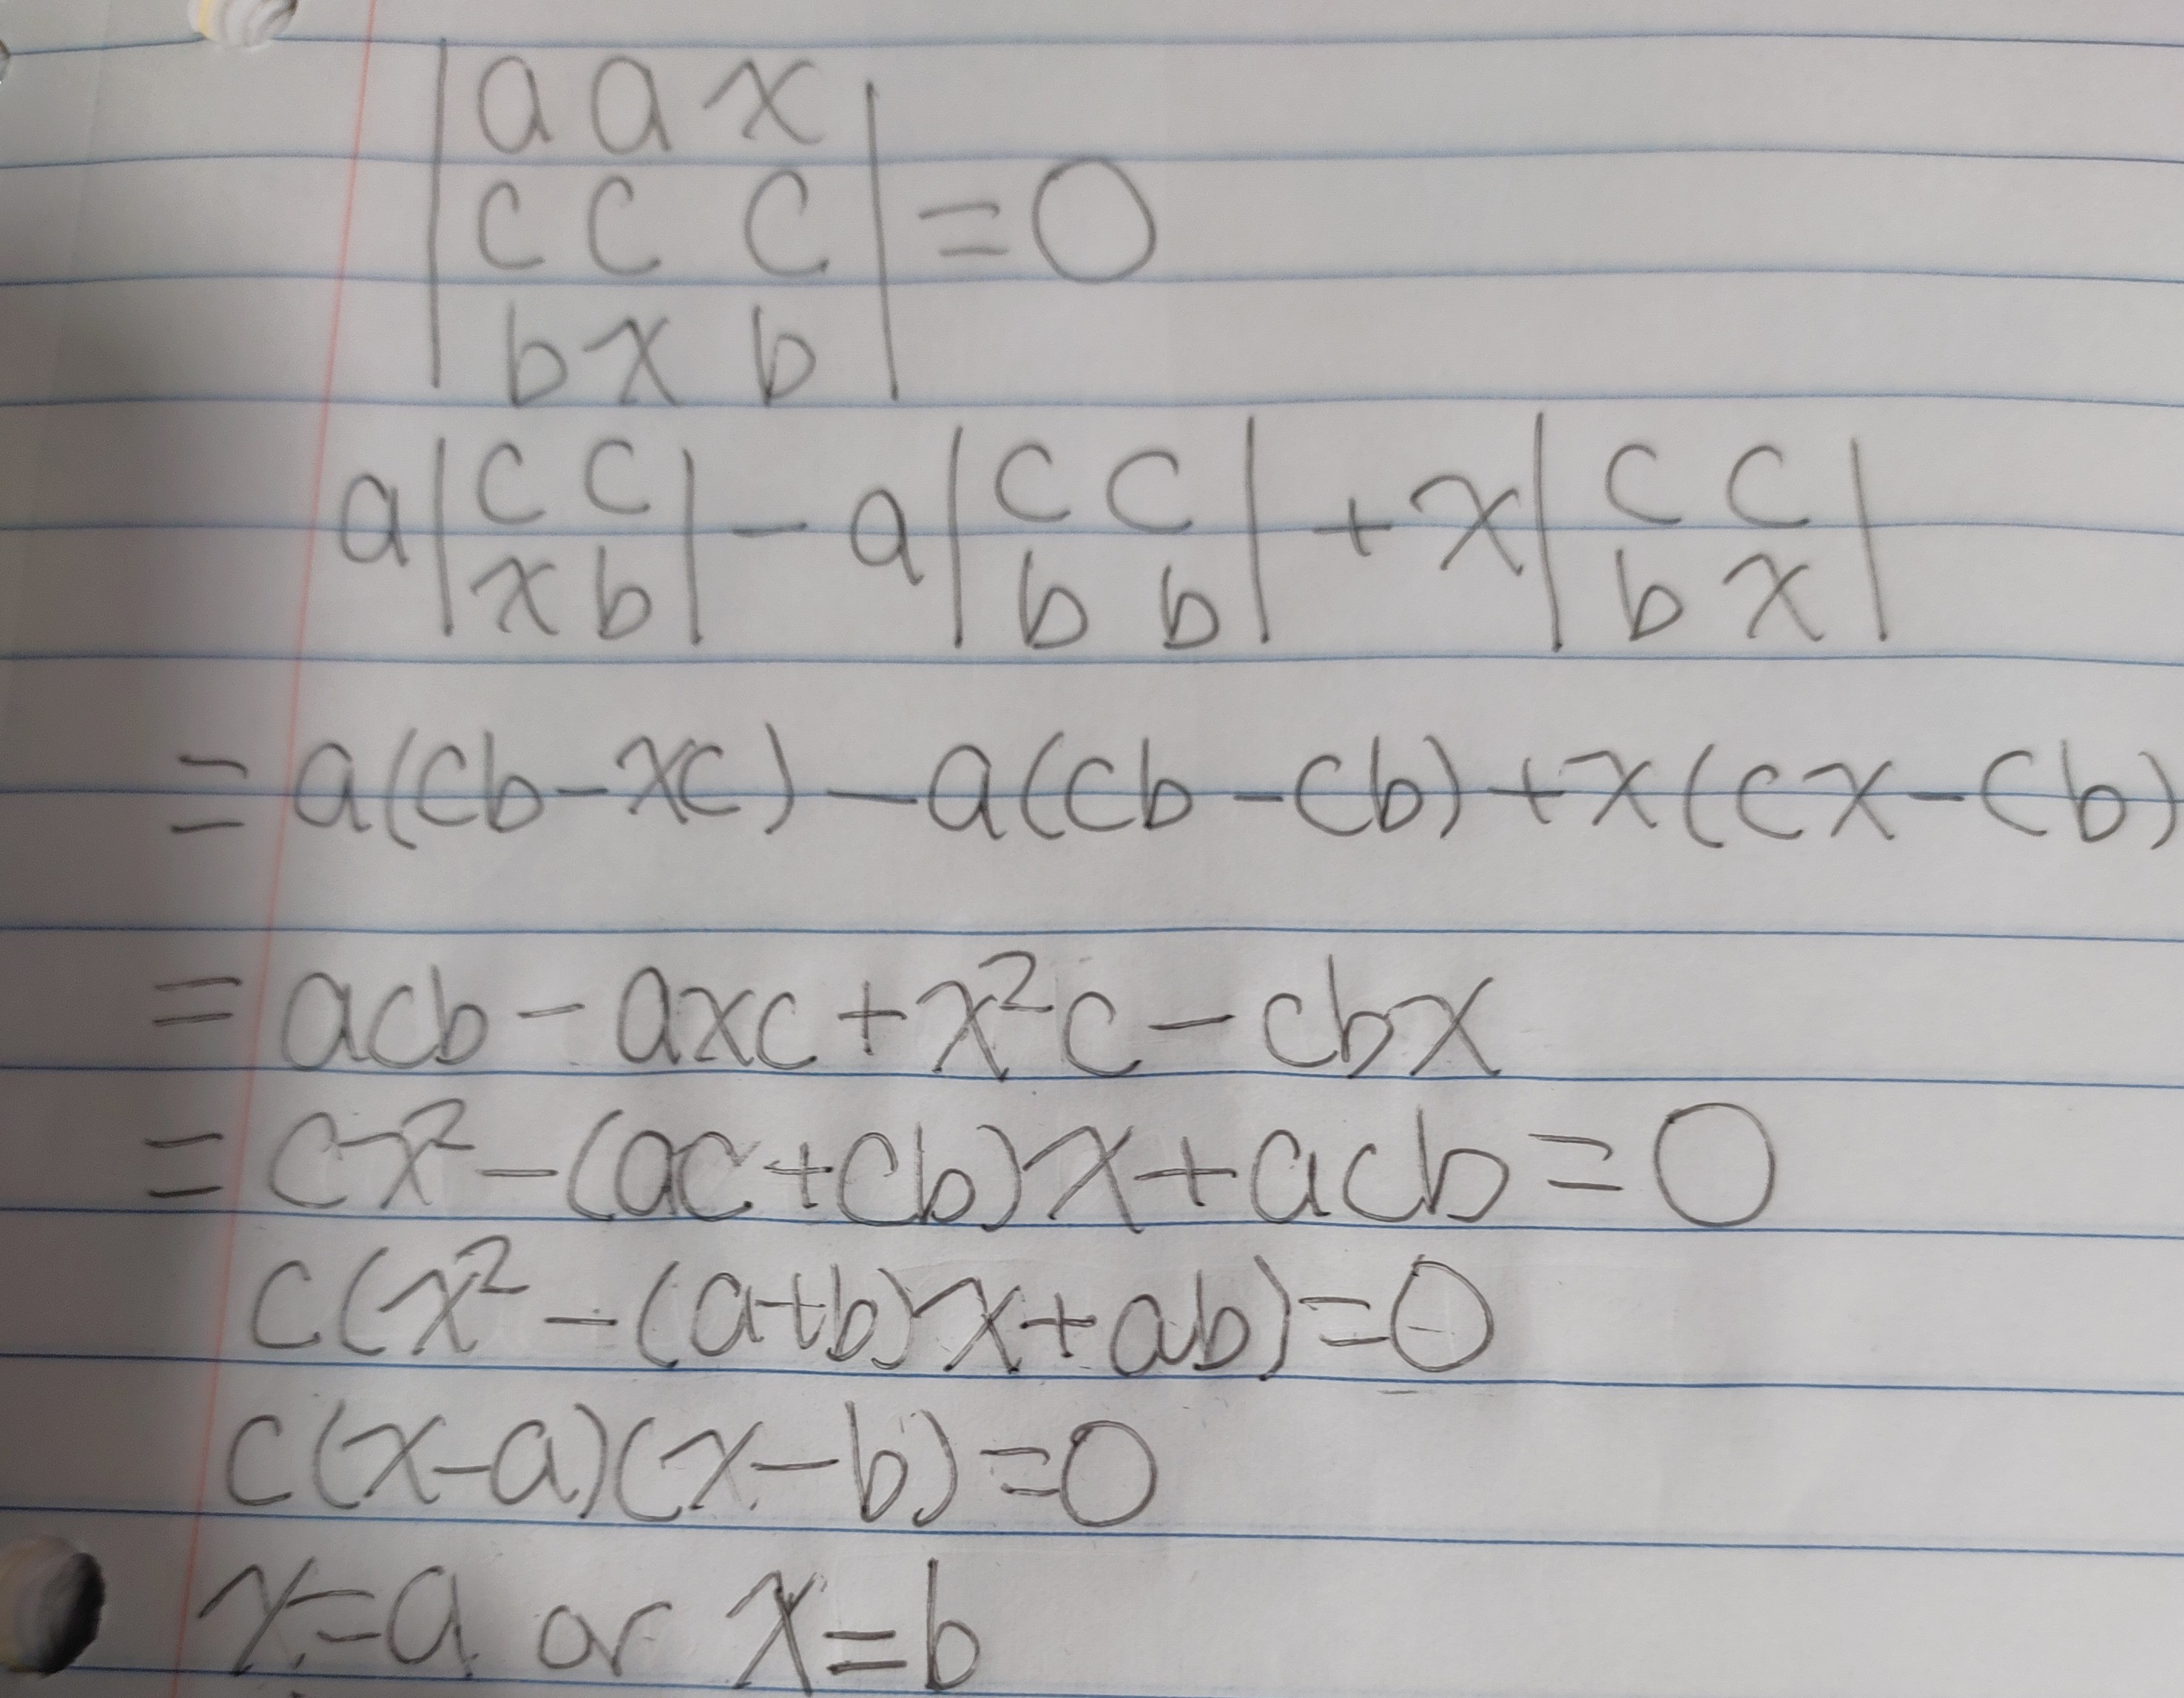 | a a x |
| c c c | = 0
| b x b |
a | c c | - a | c c | + x | c c |
| x b | | b b | | b x |
= a(cb - xc) - a(cb - cb) + x(cx - cb)
= acb - axc + x² c - cbx
= cx² - (ac + cb)x + acb = 0
c(x² - (a+b)x + ab) = 0
c(x-a)(x-b) = 0
x = a or x = b